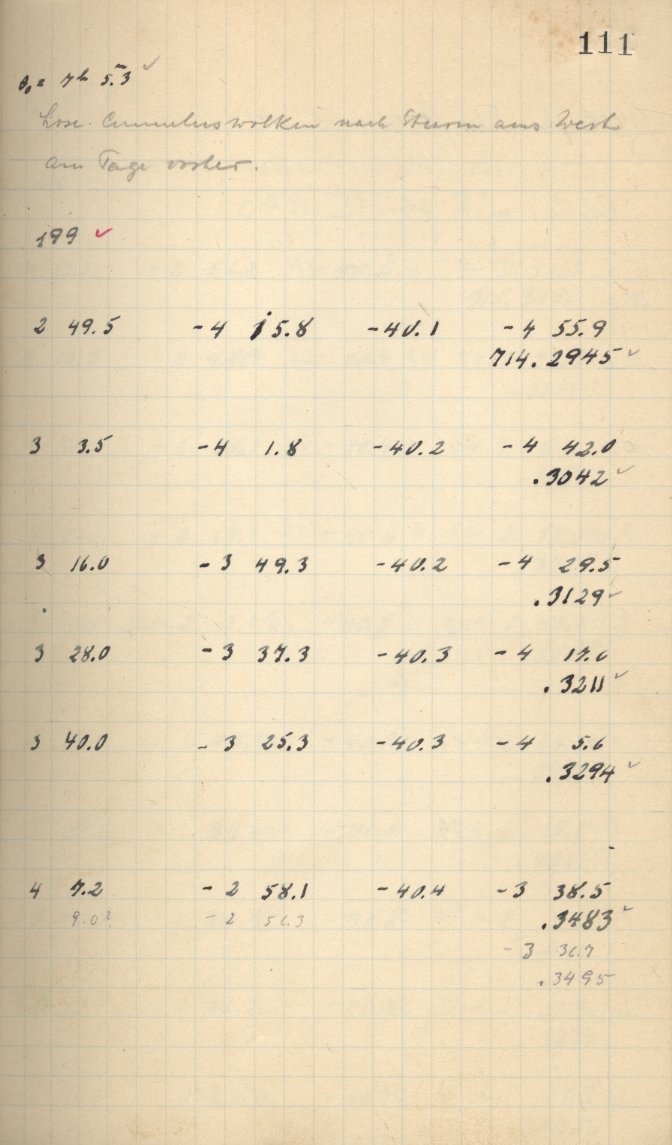 111
θ₀ = 7ʰ 5.ᵐ3 ✓
Lose Cumuluswolken nach Sturm aus West
am Tage vorher.
199 ✓
2 49.5 -4 15.8 -40.1 -4 55.9
714.2945 ✓
3 3.5 -4 1.8 -40.2 -4 42.0
.3042 ✓
3 16.0 -3 49.3 -40.2 -4 29.5
.3129 ✓
3 28.0 -3 37.3 -40.3 -4 17.6
.3211 ✓
3 40.0 -3 25.3 -40.3 -4 5.6
.3294 ✓
4 7.2 -2 58.1 -40.4 -3 38.5
9.0? -2 56.3 .3483 ✓
-3 36.7
.3495